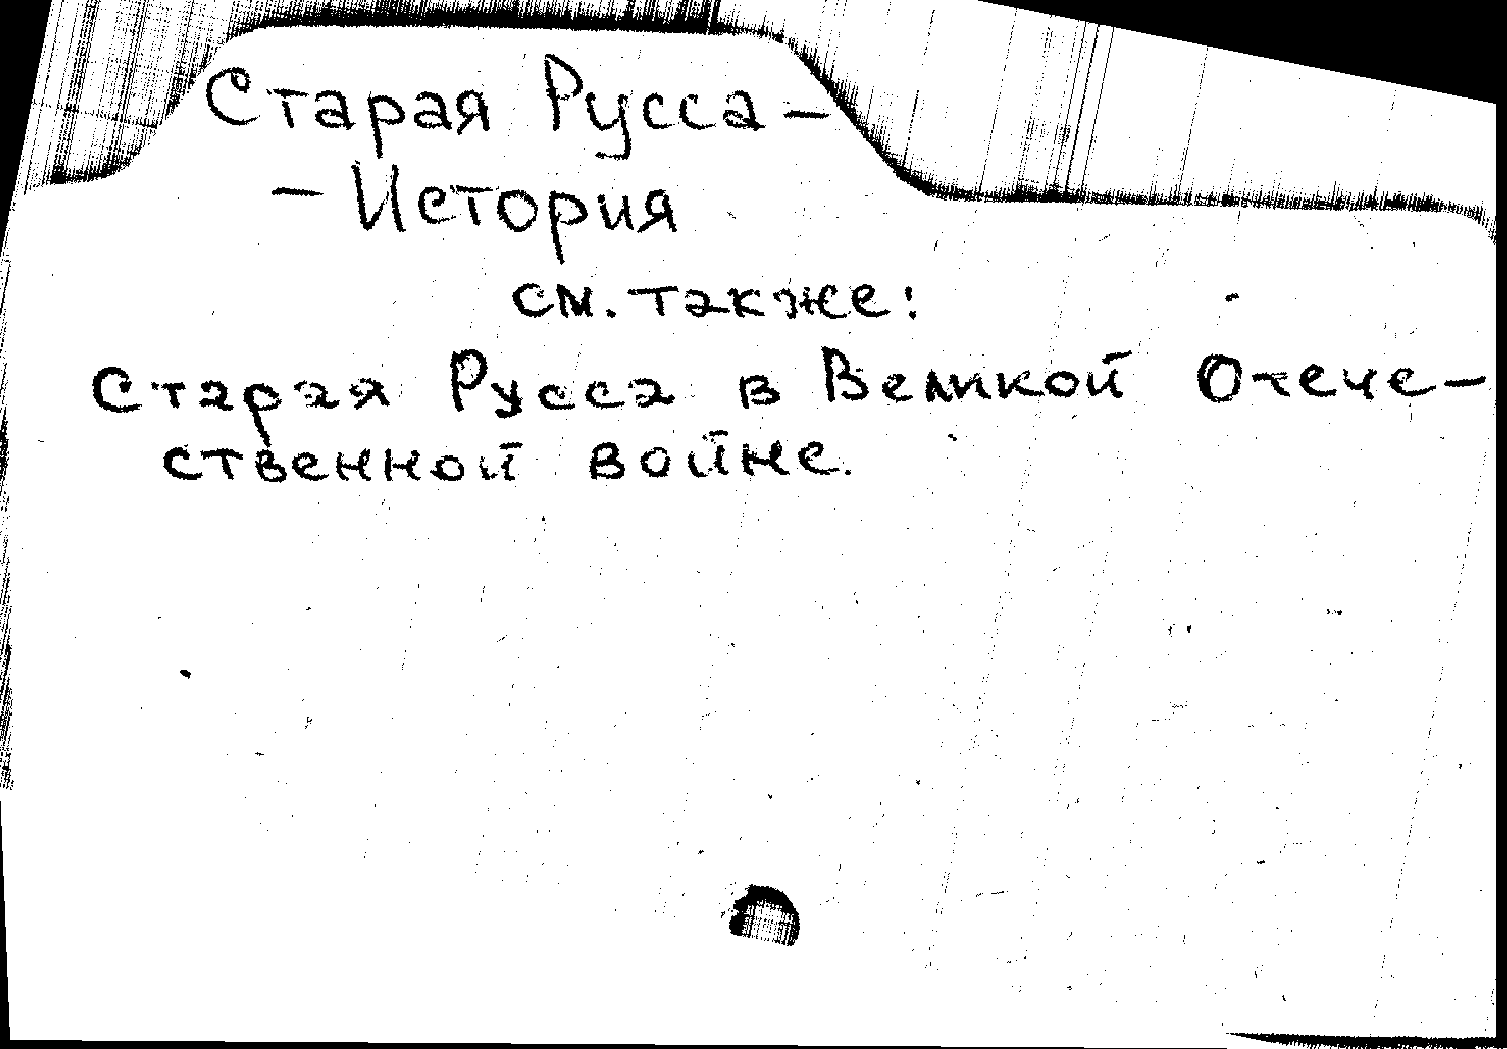 Старая Русса –
– История
см. также:
Старая Русса в Великой Отече-
ственной войне.